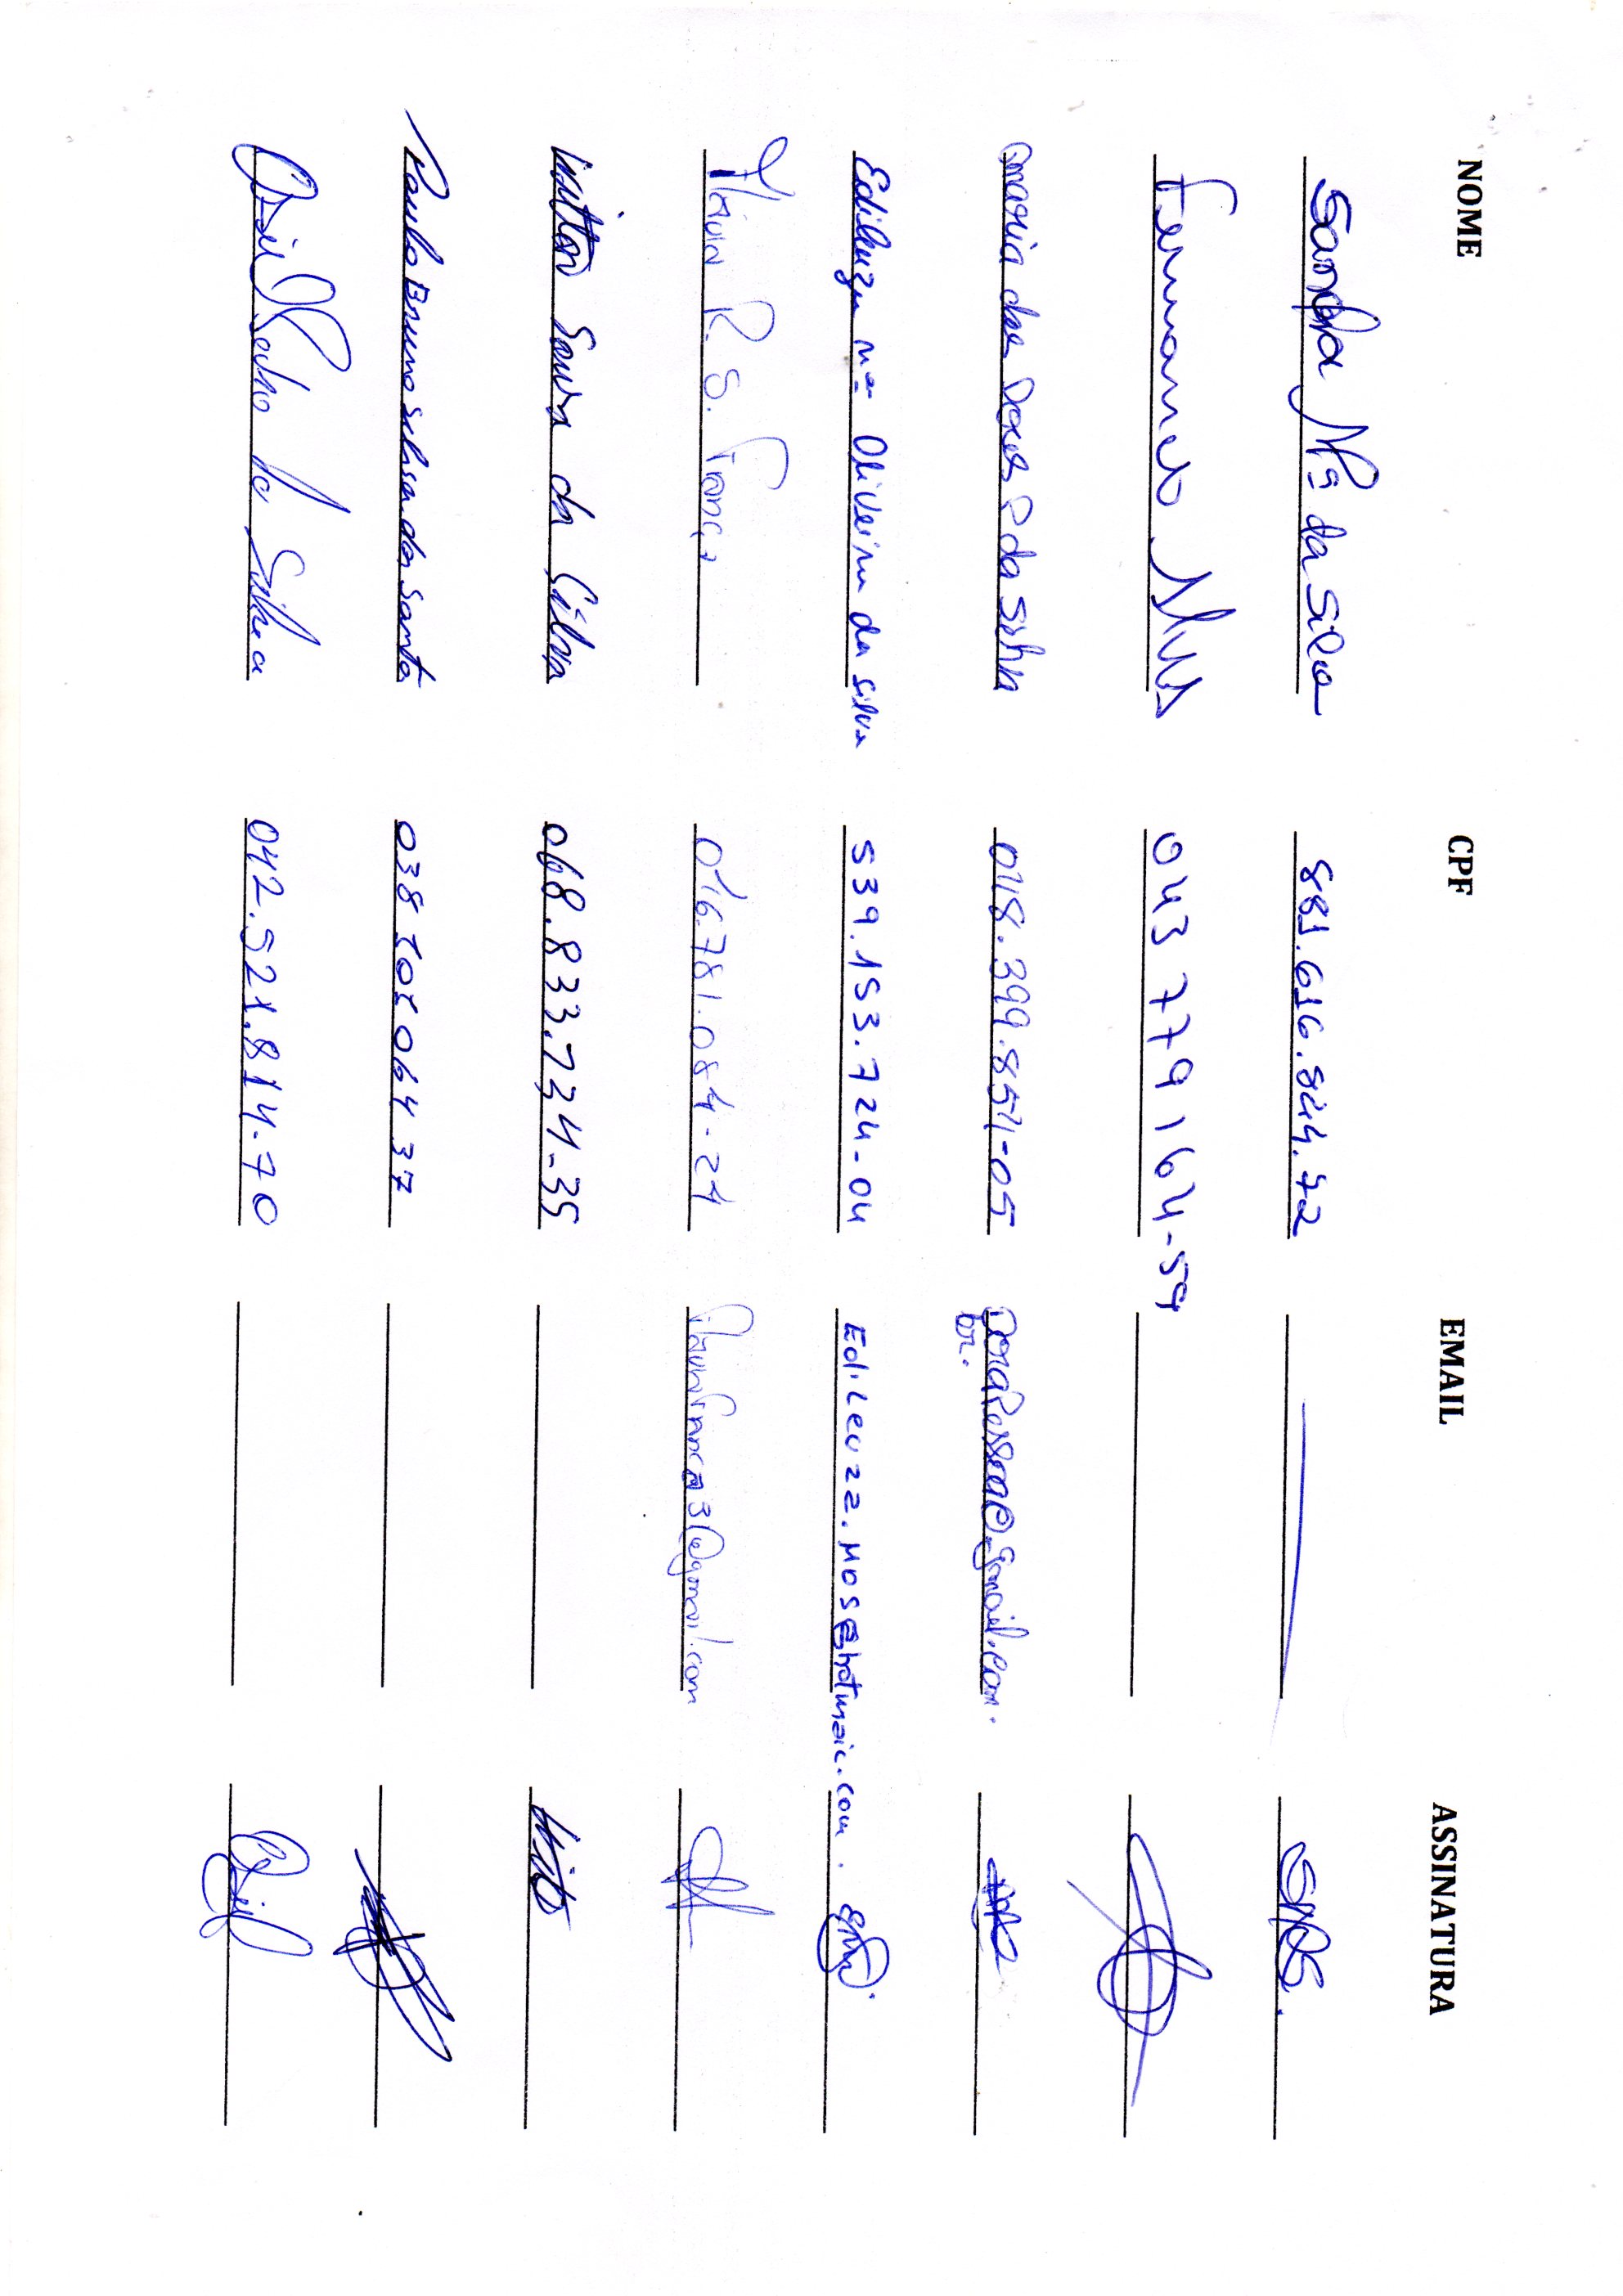 NOME CPF EMAIL ASSINATURA
Sandra Mª da Silva 881.616.844.72
Fernando Alves 043 779 164-59
Maria das Dores P da Silva 048.399.854-05 @gmail.com.
br.
Edileuza Mª Oliveira da Silva 539.153.724-04 Edileuza.MOS@hotmaic.com.
Flávia R. S. França 046.781.084-24 flaviafranca31@gmail.com
Vitor Souza da Silva 068.833.734-35
Paulo Bruno silva dos Santos 038 064 37
Pedro da Silva 042.521.814-70